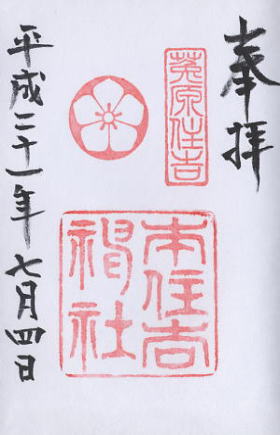 奉拝
莵原住吉
本住吉
神社
平成二十一年七月四日